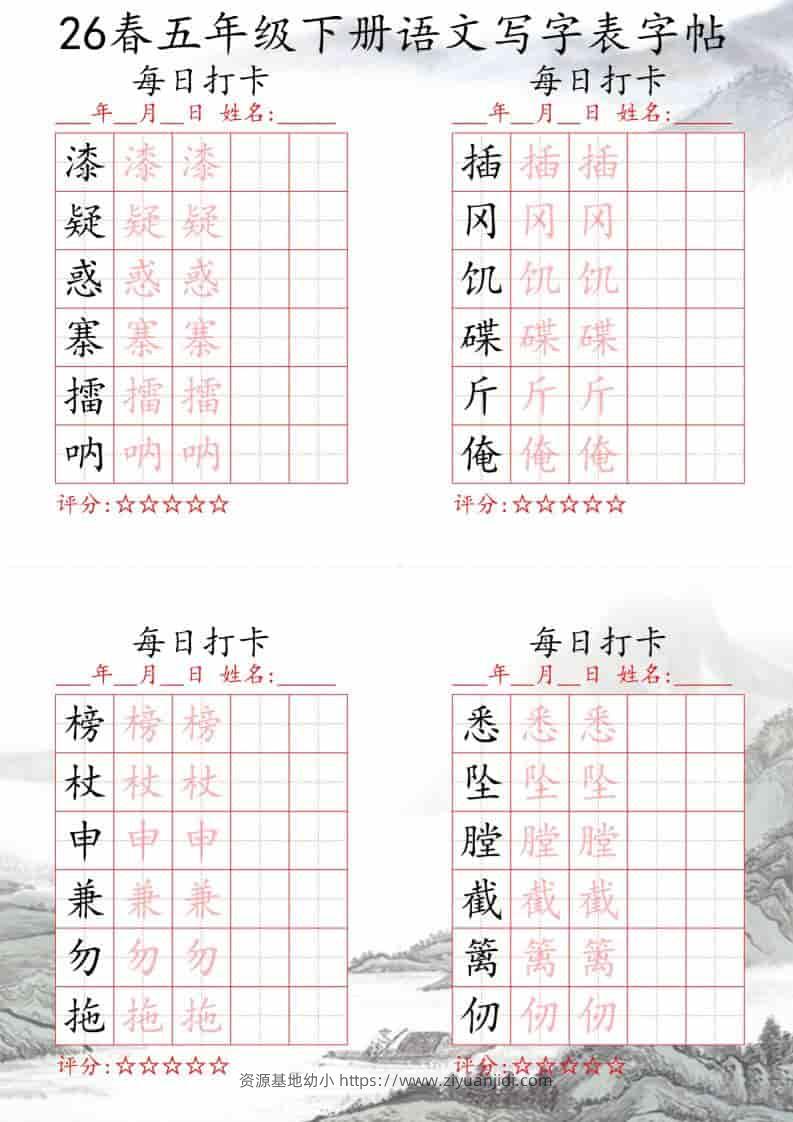 26春五年级下册语文写字表字帖
每日打卡
___年__月__日 姓名:_____
漆漆漆
疑疑疑
惑惑惑
寨寨寨
擂擂擂
呐呐呐
评分:☆☆☆☆☆
每日打卡
___年__月__日 姓名:_____
插插插
冈冈冈
饥饥饥
碟碟碟
斤斤斤
俺俺俺
评分:☆☆☆☆☆
每日打卡
___年__月__日 姓名:_____
榜榜榜
杖杖杖
申申申
兼兼兼
勿勿勿
拖拖拖
评分:☆☆☆☆☆
每日打卡
___年__月__日 姓名:_____
悉悉悉
坠坠坠
膛膛膛
截截截
篱篱篱
仞仞仞
评分:☆☆☆☆☆
资源基地幼小 https://www.ziyuanjidi.com